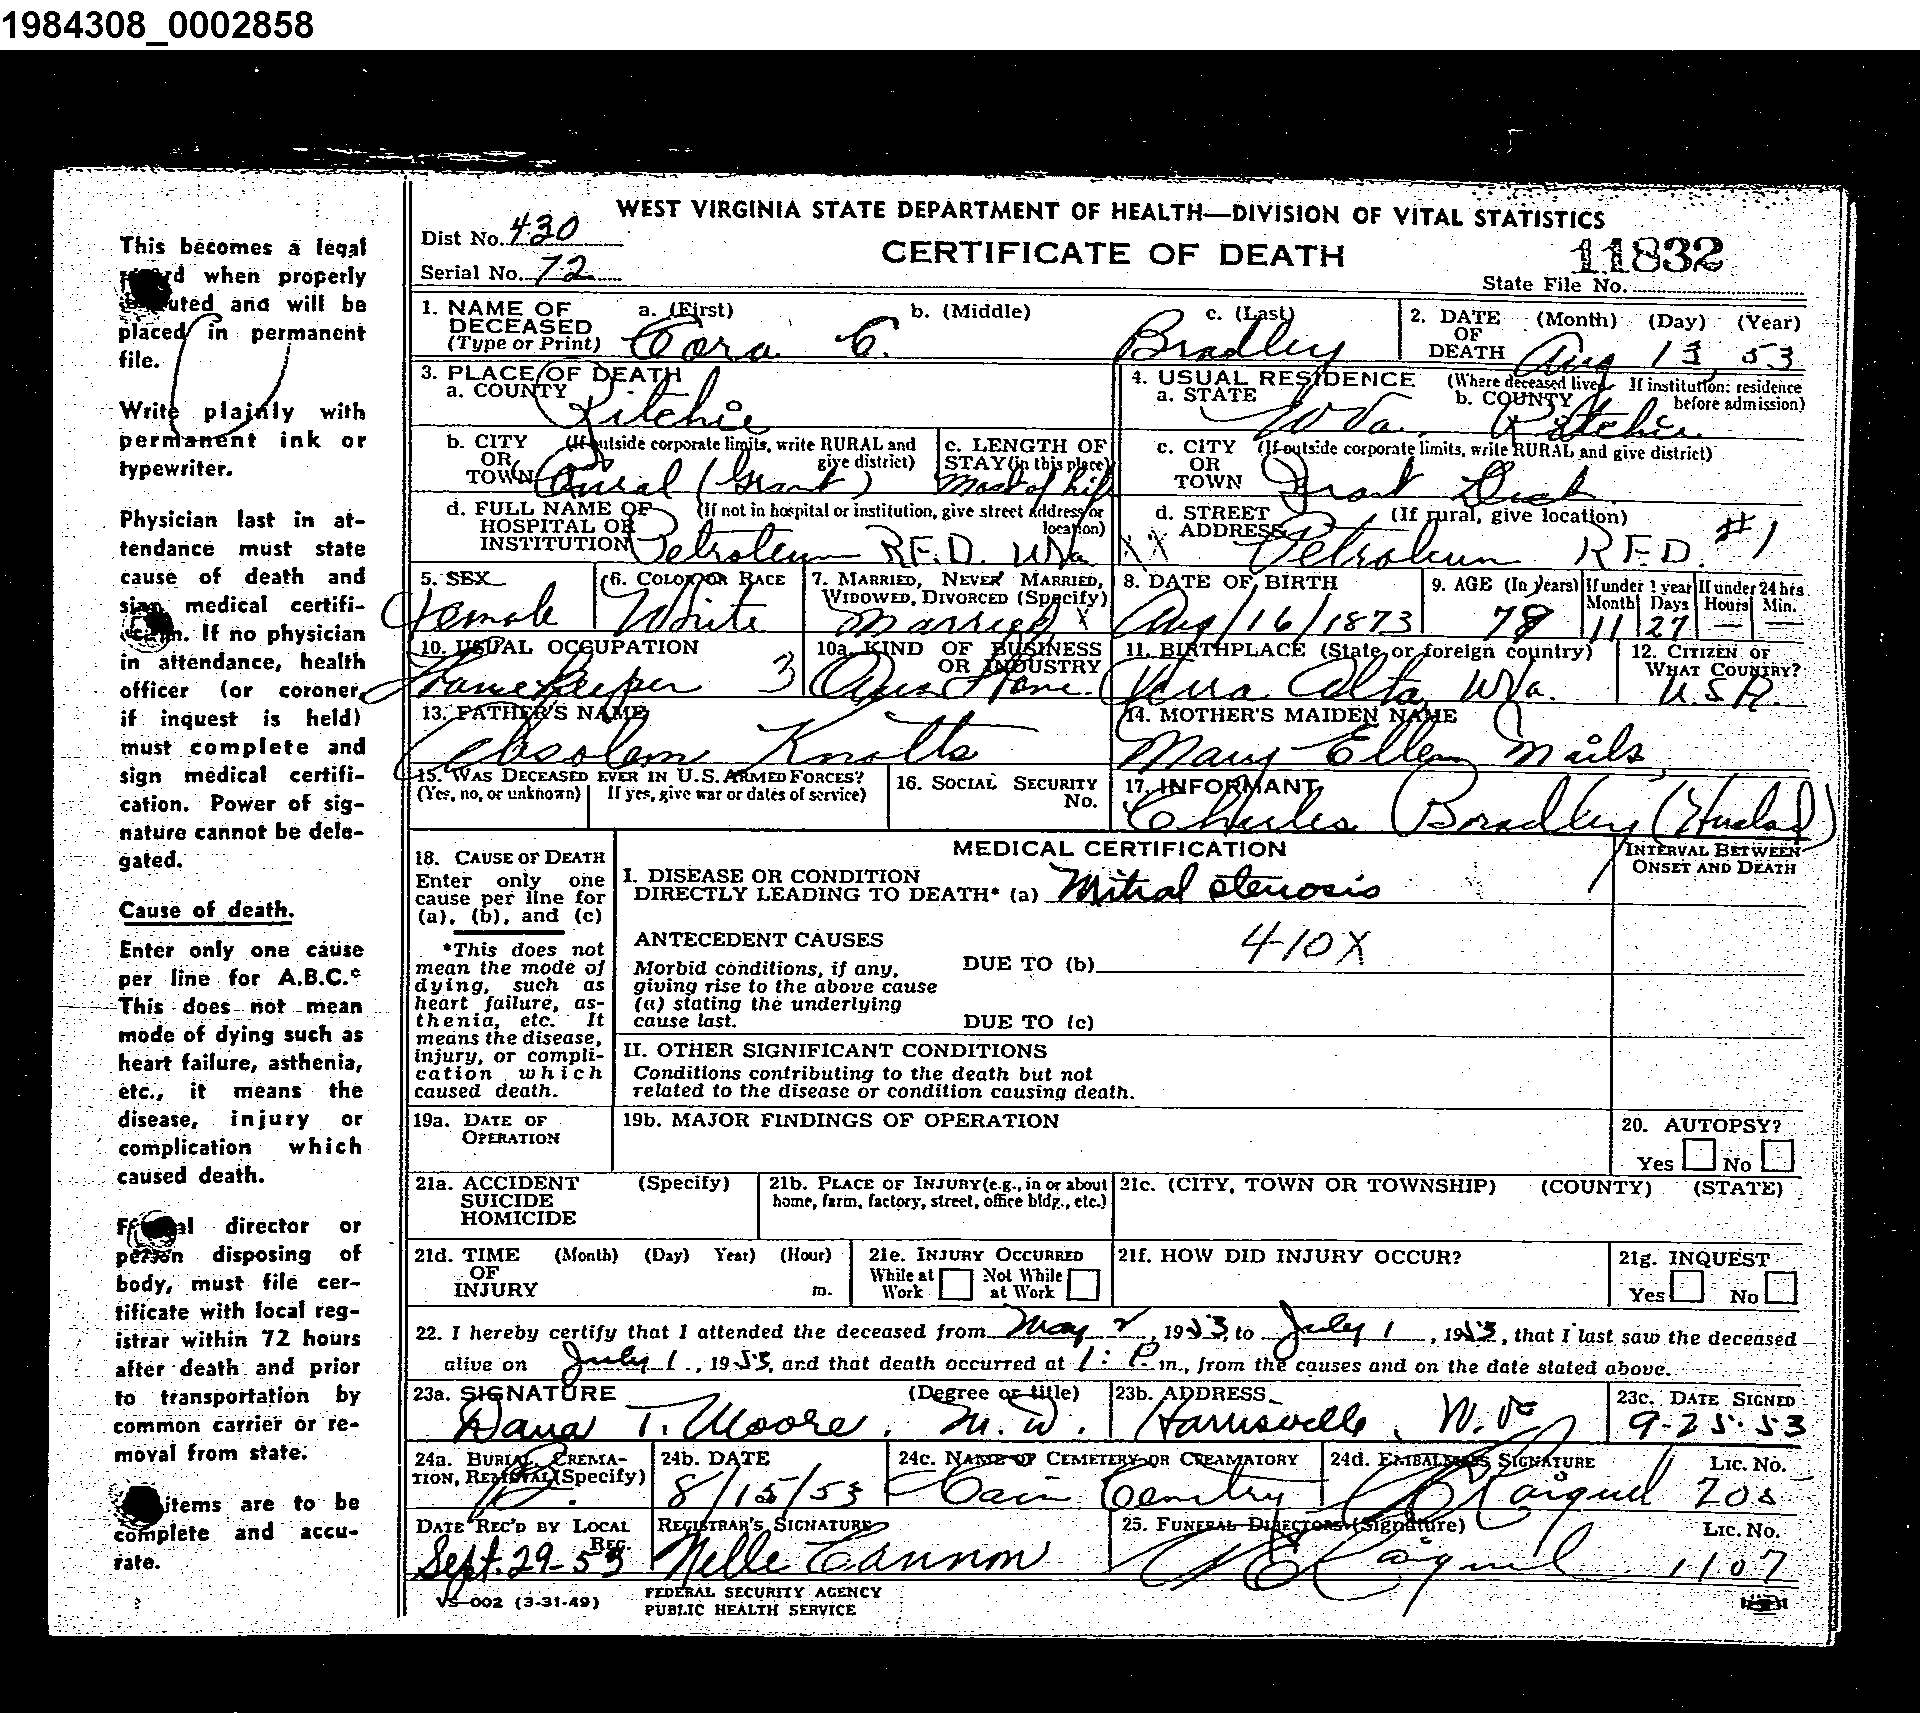 1984308_0002858
WEST VIRGINIA STATE DEPARTMENT OF HEALTH—DIVISION OF VITAL STATISTICS
Dist No. 430
CERTIFICATE OF DEATH
11832
Serial No. 72
State File No.
This becomes a legal
record when properly
executed and will be
placed in permanent
file.
Write plainly with
permanent ink or
typewriter.
Physician last in at-
tendance must state
cause of death and
sign medical certifi-
cation. If no physician
in attendance, health
officer (or coroner,
if inquest is held)
must complete and
sign medical certifi-
cation. Power of sig-
nature cannot be dele-
gated.
Cause of death.
Enter only one cause
per line for A.B.C.*
This does not mean
mode of dying such as
heart failure, asthenia,
etc., it means the
disease, injury or
complication which
caused death.
Funeral director or
person disposing of
body, must file cer-
tificate with local reg-
istrar within 72 hours
after death and prior
to transportation by
common carrier or re-
moval from state.
items are to be
complete and accu-
rate.
1. NAME OF DECEASED (Type or Print) a. (First) b. (Middle) c. (Last)
Cora C. Bradley
2. DATE OF DEATH (Month) (Day) (Year)
Aug 13, 53
3. PLACE OF DEATH
a. COUNTY Ritchie
4. USUAL RESIDENCE (Where deceased lived. If institution: residence before admission)
a. STATE W Va. b. COUNTY Ritchie
b. CITY OR TOWN (If outside corporate limits, write RURAL and give district)
Rural (Grant)
c. LENGTH OF STAY (in this place)
Most of life
c. CITY OR TOWN (If outside corporate limits, write RURAL and give district)
Grant Dist
d. FULL NAME OF HOSPITAL OR INSTITUTION (If not in hospital or institution, give street address or location)
Petroleum R.F.D. W Va
d. STREET ADDRESS (If rural, give location)
Petroleum R.F.D. #1
5. SEX Female
6. COLOR OR RACE White
7. MARRIED, NEVER MARRIED, WIDOWED, DIVORCED (Specify) Married X
8. DATE OF BIRTH Aug/16/1873
9. AGE (In years) 79
If under 1 year Month Days 11 27
If under 24 hrs. Hours Min. — —
10. USUAL OCCUPATION Housekeeper 3
10a. KIND OF BUSINESS OR INDUSTRY Own Home.
11. BIRTHPLACE (State or foreign country) Terra Alta, W Va.
12. CITIZEN OF WHAT COUNTRY? U.S.A.
13. FATHER'S NAME Absolem Knotts
14. MOTHER'S MAIDEN NAME Mary Ellen Mails
15. WAS DECEASED EVER IN U.S. ARMED FORCES?
(Yes, no, or unknown) If yes, give war or dates of service)
16. SOCIAL SECURITY No.
17. INFORMANT Charles Bradley (Husband)
18. CAUSE OF DEATH
Enter only one
cause per line for
(a), (b), and (c)
*This does not
mean the mode of
dying, such as
heart failure, as-
thenia, etc. It
means the disease,
injury, or compli-
cation which
caused death.
MEDICAL CERTIFICATION
INTERVAL BETWEEN
ONSET AND DEATH
I. DISEASE OR CONDITION
DIRECTLY LEADING TO DEATH* (a) Mitral stenosis
ANTECEDENT CAUSES
410X
Morbid conditions, if any,
giving rise to the above cause
(a) stating the underlying
cause last.
DUE TO (b)
DUE TO (c)
II. OTHER SIGNIFICANT CONDITIONS
Conditions contributing to the death but not
related to the disease or condition causing death.
19a. DATE OF OPERATION
19b. MAJOR FINDINGS OF OPERATION
20. AUTOPSY?
Yes No
21a. ACCIDENT SUICIDE HOMICIDE (Specify)
21b. PLACE OF INJURY (e.g., in or about
home, farm, factory, street, office bldg., etc.)
21c. (CITY, TOWN OR TOWNSHIP) (COUNTY) (STATE)
21d. TIME OF INJURY (Month) (Day) Year) (Hour) m.
21e. INJURY OCCURRED
While at Work Not While at Work
21f. HOW DID INJURY OCCUR?
21g. INQUEST
Yes No
22. I hereby certify that I attended the deceased from May 2, 1953, to July 1, 1953, that I last saw the deceased
alive on July 1, 1953, and that death occurred at 1: P. m., from the causes and on the date stated above.
23a. SIGNATURE (Degree or title)
Dana T. Moore, M.D.
23b. ADDRESS
Harrisville, W. Va
23c. DATE SIGNED
9-25-53
24a. BURIAL, CREMA-
TION, REMOVAL (Specify)
B.
24b. DATE
8/15/53
24c. NAME OF CEMETERY OR CREAMATORY
Cain Cemetry
24d. EMBALMER'S SIGNATURE Lic. No.
208
DATE REC'D BY LOCAL REG.
Sept. 29-53
REGISTRAR'S SIGNATURE
Nelle Cannon
25. FUNERAL DIRECTORS (Signature) Lic. No.
1107
VS-002 (3-31-49)
FEDERAL SECURITY AGENCY
PUBLIC HEALTH SERVICE